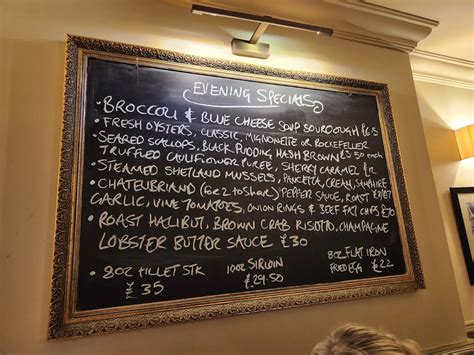 EVENING SPECIALS
• BROCCOLI & BLUE CHEESE SOUP SOURDOUGH £6.5
• FRESH OYSTERS, CLASSIC, MIGNONETTE OR ROCKEFELLER
• SEARED SCALLOPS, BLACK PUDDING, HASH BROWN £3.50 each
TRUFFLED CAULIFLOWER PUREE, SHERRY CARAMEL
• STEAMED SHETLAND MUSSELS, PANCETTA, CREAM, SAMPHIRE
• CHATEUBRIAND (for 2 to share) PEPPER SAUCE, ROAST
GARLIC, VINE TOMATOES, ONION RINGS & BEEF FAT CHIPS £70
• ROAST HALIBUT, BROWN CRAB RISOTTO, CHAMPAGNE
LOBSTER BUTTER SAUCE £30
• 8oz FILLET STK 10oz SIRLOIN 8oz FLAT IRON
35 £29.50 FRIED EGG £22